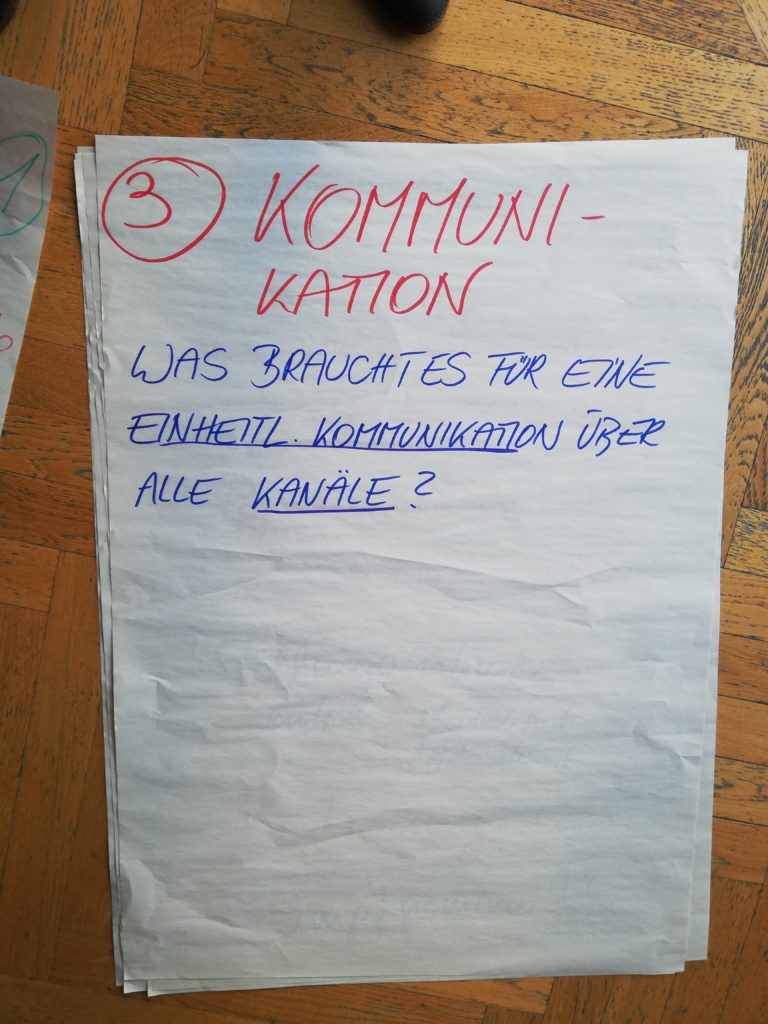 3 KOMMUNI-
KATION
WAS BRAUCHT ES FÜR EINE
EINHEITL. KOMMUNIKATION ÜBER
ALLE KANÄLE?
1